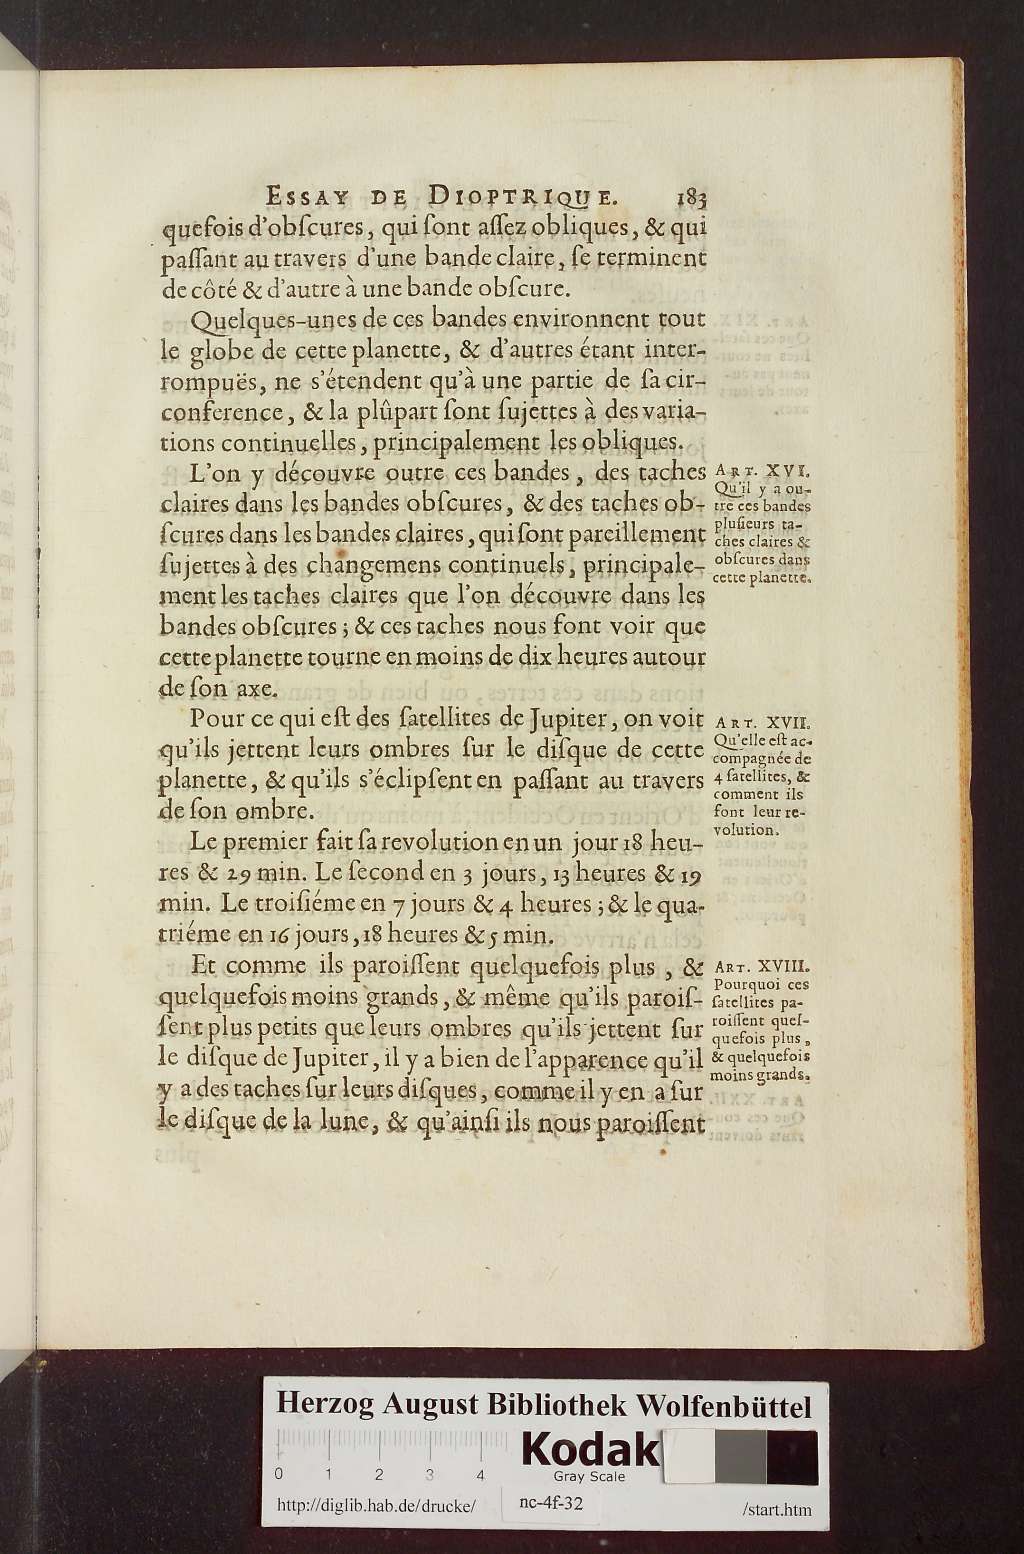 ESSAY DE DIOPTRIQUE. 183
quefois d'obſcures, qui ſont aſſez obliques, & qui
paſſant au travers d'une bande claire, ſe terminent
de côté & d'autre à une bande obſcure.
Quelques-unes de ces bandes environnent tout
le globe de cette planette, & d'autres étant inter-
rompuës, ne s'étendent qu'à une partie de ſa cir-
conference, & la plûpart ſont ſujettes à des varia-
tions continuelles, principalement les obliques.
L'on y découvre outre ces bandes, des taches
claires dans les bandes obſcures, & des taches ob-
ſcures dans les bandes claires, qui ſont pareillement
ſujettes à des changemens continuels, principale-
ment les taches claires que l'on découvre dans les
bandes obſcures ; & ces taches nous font voir que
cette planette tourne en moins de dix heures autour
de ſon axe.
ART. XVI.
Qu'il y a ou-
tre ces bandes
pluſieurs ta-
ches claires &
obſcures dans
cette planette.
Pour ce qui eſt des ſatellites de Jupiter, on voit
qu'ils jettent leurs ombres ſur le diſque de cette
planette, & qu'ils s'éclipſent en paſſant au travers
de ſon ombre.
ART. XVII.
Qu'elle eſt ac-
compagnée de
4 ſatellites, &
comment ils
font leur re-
volution.
Le premier fait ſa revolution en un jour 18 heu-
res & 29 min. Le ſecond en 3 jours, 13 heures & 19
min. Le troiſiéme en 7 jours & 4 heures ; & le qua-
triéme en 16 jours, 18 heures & 5 min.
Et comme ils paroiſſent quelquefois plus, &
quelquefois moins grands, & même qu'ils paroiſ-
ſent plus petits que leurs ombres qu'ils jettent ſur
le diſque de Jupiter, il y a bien de l'apparence qu'il
y a des taches ſur leurs diſques, comme il y en a ſur
le diſque de la lune, & qu'ainſi ils nous paroiſſent
ART. XVIII.
Pourquoi ces
ſatellites pa-
roiſſent quel-
quefois plus,
& quelquefois
moins grands.
Herzog August Bibliothek Wolfenbüttel
Kodak
Gray Scale
0 1 2 3 4
http://diglib.hab.de/drucke/ nc-4f-32 /start.htm